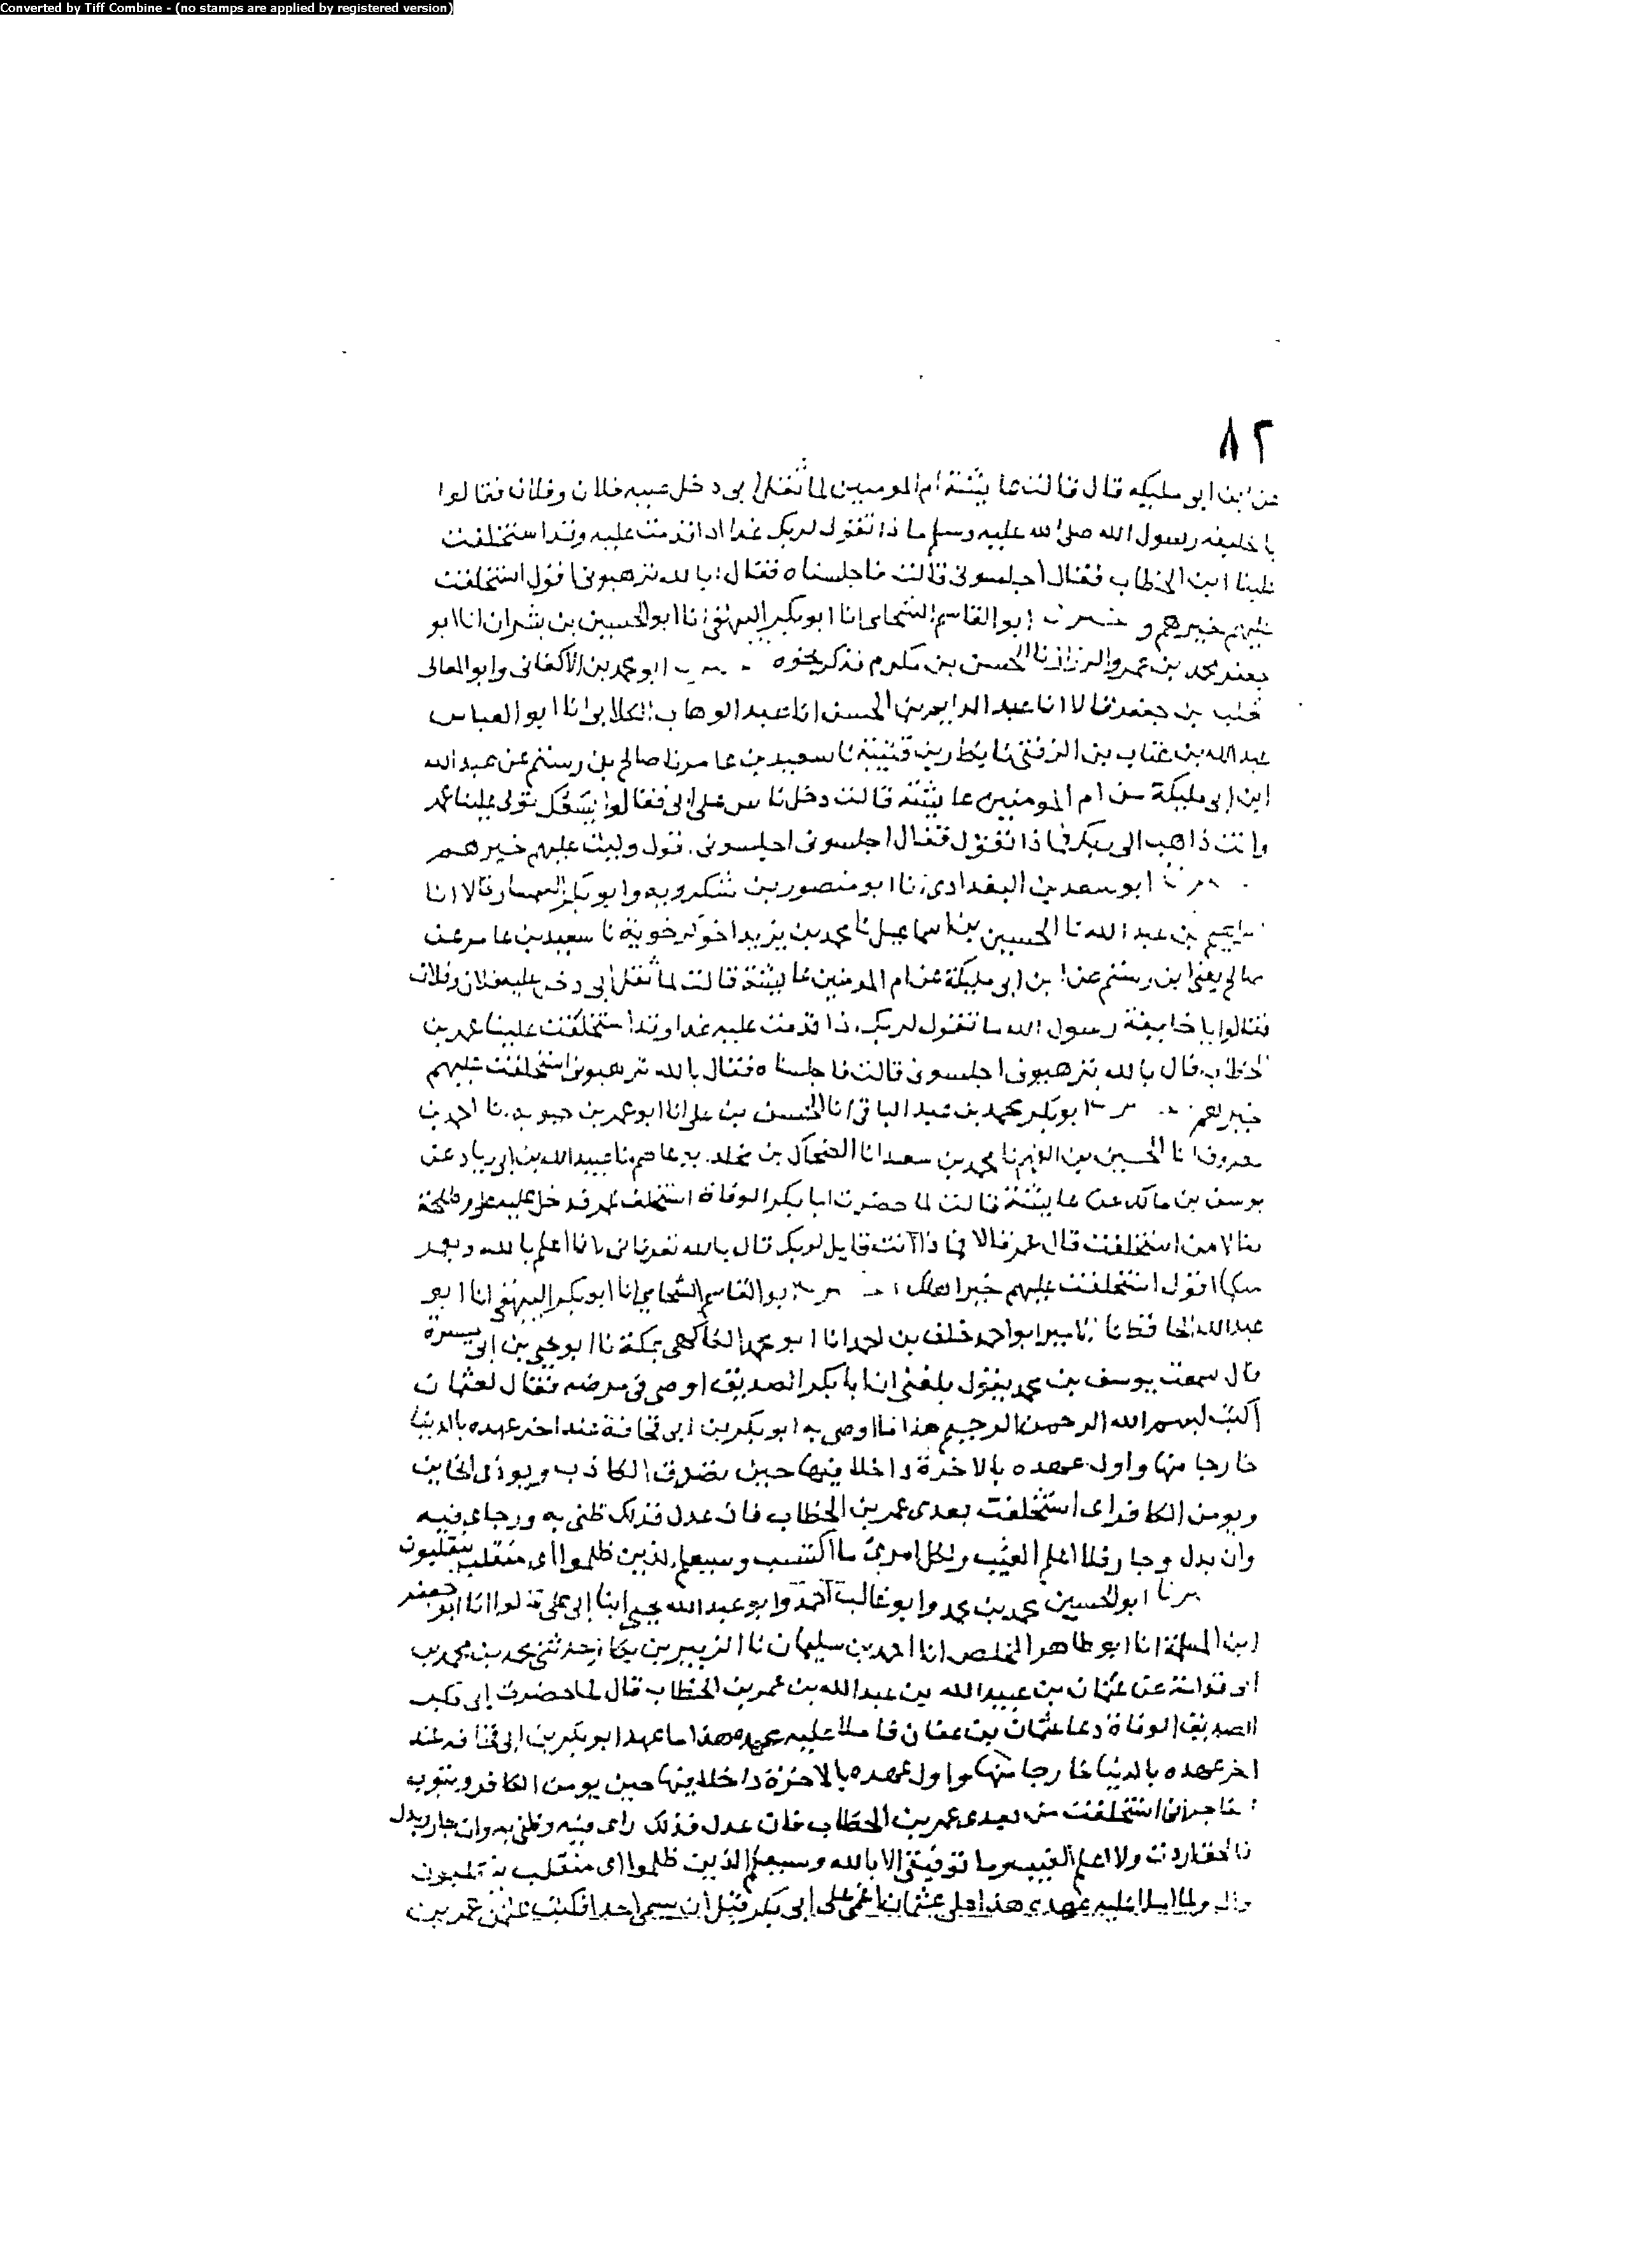 Converted by Tiff Combine - (no stamps are applied by registered version)
٨٢
عن ابن ابى مليكه قال قالت عايشة ام المومنين لما ثقل ابى دخل عليه فلان وفلان فقالوا
يا خليفه رسول الله صلى الله عليه وسلم ما ذا تقول لربك غدا اذا قدمت عليه وقد استخلفت
علينا ابن الخطاب فقال اجلسونى قالت فاجلسناه فقال ابالله ترهبونى اقول استخلفت
عليهم خيرهم و ابو القاسم الشحامى انا ابو بكر البيهقى انا ابو الحسين بن بشران انا ابو
جعفر محمد بن عمرو الرزاز نا الحسن بن مكرم فذكر نحوه ابو محمد بن الاكفانى وابو المعالى
بن جعفر قالا انا عبد الدايم بن الحسن انا عبد الوهاب الكلابى انا ابو العباس
عبد الله بن عتاب بن الزفتى نا بن قتيبة نا سعيد بن عامر نا صالح بن رستم عن عبد الله
ابن ابى مليكة عن ام المومنين عايشة قالت دخل ناس على ابى فقالوا تولى علينا عمر
وانت ذاهب الى ربك فماذا تقول فقال اجلسونى اجلسونى اقول وليت عليهم خيرهم
ابو سعد بن البغدادى انا ابو منصور بن شكرويه وابو بكر السمسار قالا انا
ابراهيم بن عبد الله نا الحسين بن اسماعيل نا محمد بن يزيد اخو كرخوية نا سعيد بن عامر عن
صالح يعنى ابن رستم عن ابن ابى مليكة عن ام المومنين عايشة قالت لما ثقل ابى دخل عليه فلان وفلان
فقالوا يا خليفة رسول الله ما تقول لربك اذا قدمت عليه غدا وقد استخلفت علينا عمر بن
الخطاب قال بالله ترهبونى اجلسونى قالت فاجلسناه فقال بالله ترهبونى استخلفت عليهم
خيرهم ابو بكر محمد بن عبد الباقى انا الحسن بن على انا ابو عمر بن حيويه نا احمد بن
معروف نا الحسين بن الفهم نا محمد بن سعد انا الضحاك بن مخلد ابو عاصم نا عبيد الله بن ابى زياد عن
يوسف بن مالك عن عايشة قالت لما حضرت ابا بكر الوفاة استخلف عمر فدخل عليه على وطلحة
فقالا من استخلفت قال عمر قالا فما ذا انت قايل لربك قال بالله تعرفانى لانا اعلم بالله وبعمر
منكما اقول استخلفت عليهم خير اهلك ابو القاسم الشحامى انا ابو بكر البيهقى انا ابو
عبد الله الحافظ نا ابو احمد خلف بن احمد انا ابو محمد الفاكهى بمكة نا ابو يحيى بن ابى ميسرة
قال سمعت يوسف بن محمد يقول بلغنى ان ابا بكر الصديق اوصى فى مرضه فقال لعثمان
اكتب بسم الله الرحمن الرحيم هذا ما اوصى به ابو بكر بن ابى قحافة عند اخر عهده بالدنيا
خارجا منها واول عهده بالاخرة داخلا فيها حين يصدق الكاذب ويوذى الخاين
ويومن الكافر انى استخلفت بعدى عمر بن الخطاب فان عدل فذلك ظنى به ورجاى فيه
وان بدل وجار فلا اعلم الغيب ولكل امرئ ما اكتسب وسيعلم الذين ظلموا اى منقلب ينقلبون
ابو الحسين محمد بن محمد وابو غالب احمد وابو عبد الله يحيى ابنا ابى على قالوا انا ابو جعفر
ابن المسلمة انا ابو طاهر المخلص انا احمد بن سليمان نا الزبير بن بكار حدثنى محمد بن محمد بن
ابى قدامة عن عثمان بن عبيد الله بن عبد الله بن عمر بن الخطاب قال لما حضرت ابى بكر
الصديق الوفاة دعا عثمان بن عفان فاملا عليه عهده هذا ما عهد ابو بكر بن ابى قحافه عند
اخر عهده بالدنيا خارجا منها واول عهده بالاخرة داخلا فيها حين يومن الكافر ويتوب
الفاجر انى استخلفت من بعدى عمر بن الخطاب فان عدل فذلك راى فيه وظنى به وان جار وبدل
فالحق اردت ولا اعلم الغيب وما توفيقى الا بالله وسيعلم الذين ظلموا اى منقلب ينقلبون
ولما املا عليه عهده هذا على عثمان اغمى على ابى بكر قبل ان يسمى احدا فكتب عثمن عمر بن